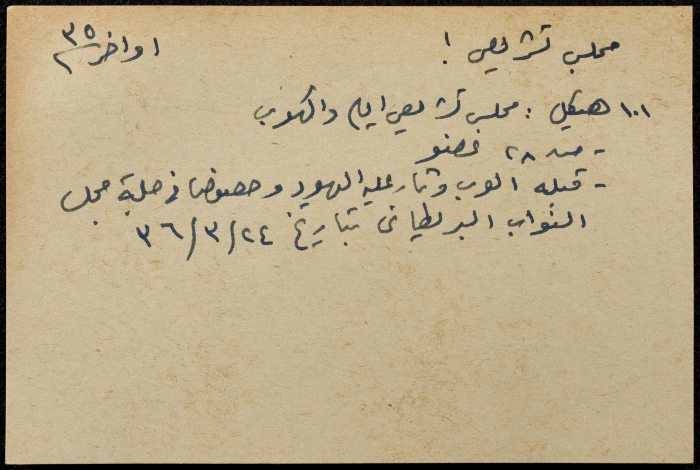 مجلس تشريعي ! اواخر ٣٥
١٠١ هيكل : مجلس تشريعي ايام واكهوب
- من ٢٨ عضو
- قبله العرب وثار عليه اليهود وخصوصا في جلسة مجلس
النواب البريطاني بتاريخ ٢٤/٣/٣٦